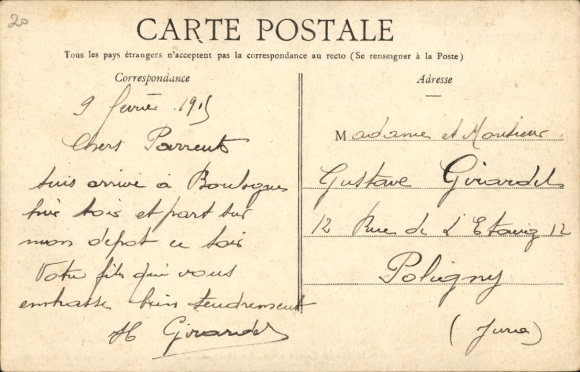 20
CARTE POSTALE
Tous les pays étrangers n'acceptent pas la correspondance au recto (Se renseigner à la Poste)
Correspondance
9 février 1915
Chers Parrents
suis arrivé à Boulogne
hier soir et part sur
mon dépot ce soir
Votre fils qui vous
embrasse bien tendrement
H Girardet
Adresse
Madame et Monsieur
Gustave Girardet
12 Rue de L'Etang 12
Poligny
(Jura)